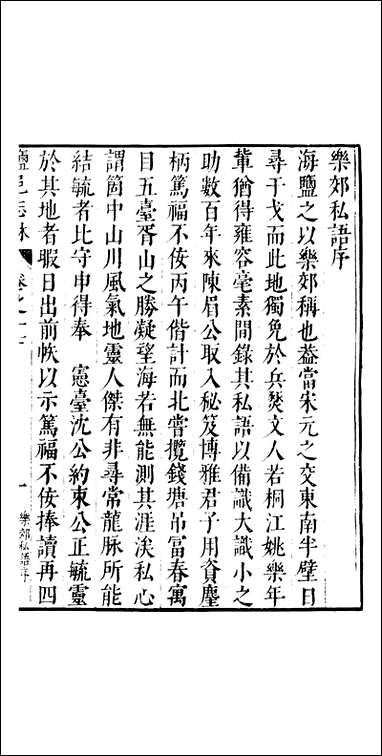 樂郊私語序
海鹽之以樂郊稱也葢當宋元之交東南半壁日
尋干戈而此地獨免於兵燹文人若桐江姚樂年
軰猶得雍容毫素間錄其私語以備識大識小之
助數百年來陳眉公取入秘笈博雅君子用資麈
柄篤福不佞丙午偕計而北嘗攬錢塘吊富春寓
目五臺胥山之勝凝望海若無能測其涯涘私心
謂箇中山川風氣地靈人傑有非尋常龍脉所能
結毓者比守申得奉　憲臺沈公約束公正毓靈
於其地者暇日出前帙以示篤福不佞捧讀再四
鹽邑志林
卷之十
一
樂郊私語序